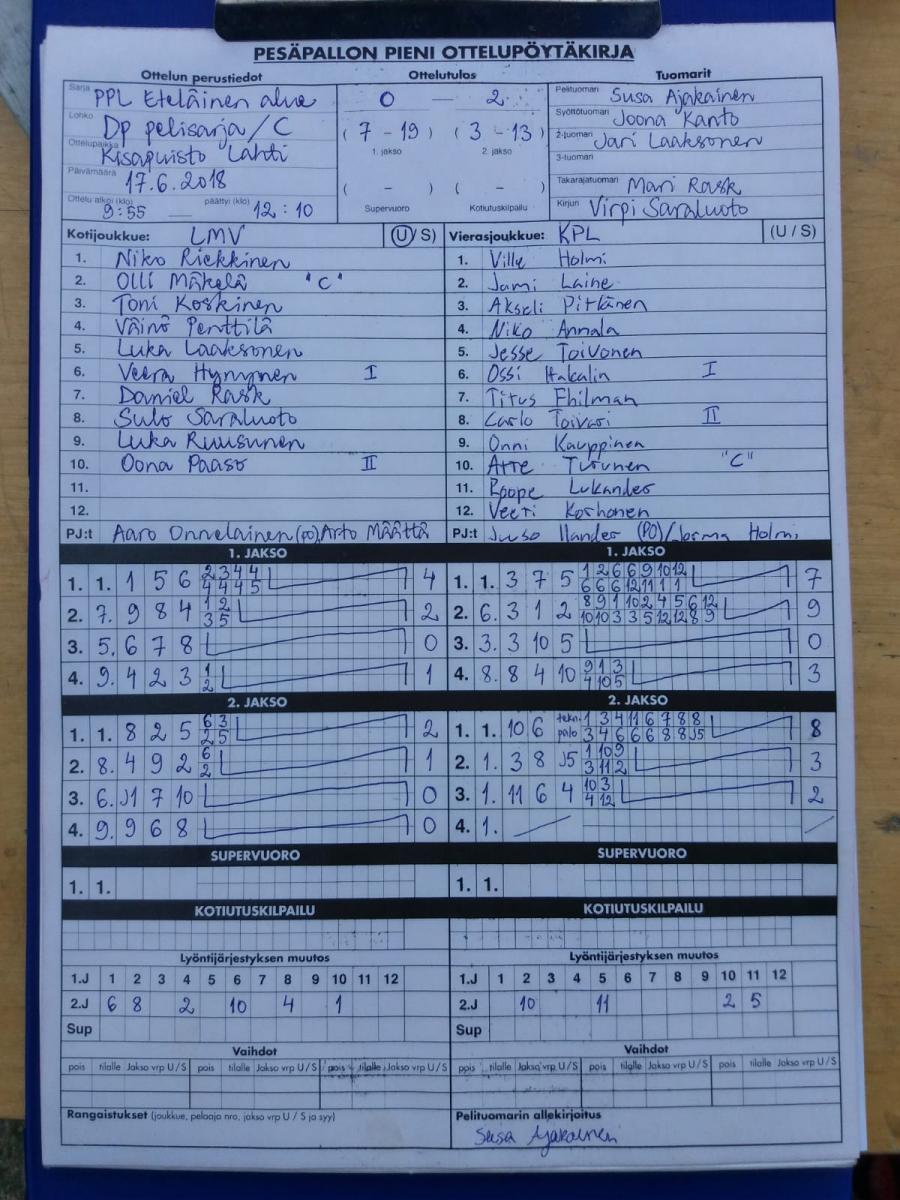 PESÄPALLON PIENI OTTELUPÖYTÄKIRJA
Ottelun perustiedot Ottelutulos Tuomarit
Sarja PPL Eteläinen alue 0 — 2 Pelituomari Susa Ajakainen
Lohko Dp pelisarja/C (7 - 19) (3 - 13) Syöttötuomari Joona Kanto
Ottelupaikka Kisapuisto Lahti 1. jakso 2. jakso 2-tuomari Jari Laaksonen
3-tuomari
Päivämäärä 17.6.2018 ( - ) ( - ) Takarajatuomari Mari Rask
Ottelu alkoi (klo) 9:55 — päättyi (klo) 12:10 Supervuoro Kotiutuskilpailu Kirjuri Virpi Saraluoto
Kotijoukkue: LMV (U/ S) Vierasjoukkue: KPL (U / S)
1. Niko Riekkinen 1. Ville Holmi
2. Olli Mäkelä "C" 2. Jami Laine
3. Toni Koskinen 3. Akseli Pitkänen
4. Väinö Penttilä 4. Niko Annala
5. Luka Laaksonen 5. Jesse Toivonen
6. Veera Hynynen I 6. Ossi Hakalin I
7. Daniel Rask 7. Titus Fhilman
8. Sulo Saraluoto 8. Carlo Toivari II
9. Luka Ruusunen 9. Onni Kauppinen
10. Oona Paaso II 10. Atte Turunen "C"
11. 11. Roope Lukander
12. 12. Veeti Korhonen
PJ:t Aaro Onnelainen (PO), Arto Määttä PJ:t Juuso Ilander (PO)/Jorma Holmi
1. JAKSO 1. JAKSO
1. 1. 1 5 6 2 3 4 4 4 1. 1. 3 7 5 1 2 6 6 9 10 12 7
4 4 4 5 6 6 6 12 11 1 1
2. 7. 9 8 4 1 2 2 2. 6. 3 1 2 8 9 1 10 2 4 5 6 12 9
3 5 10 10 3 3 5 12 12 8 9
3. 5. 6 7 8 0 3. 3. 3 10 5 0
4. 9. 4 2 3 1 1 4. 8. 8 4 10 9 1 3 3
2 4 10 5
2. JAKSO 2. JAKSO
1. 1. 8 2 5 6 3 2 1. 1. 10 6 tekn. 1 3 4 11 6 7 8 8 8
2 5 palo 3 4 6 6 6 8 8 J5
2. 8. 4 9 2 6 1 2. 1. 3 8 J5 1 10 9 3
2 3 11 2
3. 6. J1 7 10 0 3. 1. 11 6 4 10 3 2
4 12
4. 9. 9 6 8 0 4. 1. / /
SUPERVUORO SUPERVUORO
1. 1. 1. 1.
KOTIUTUSKILPAILU KOTIUTUSKILPAILU
Lyöntijärjestyksen muutos Lyöntijärjestyksen muutos
1.J 1 2 3 4 5 6 7 8 9 10 11 12 1.J 1 2 3 4 5 6 7 8 9 10 11 12
2.J 6 8 2 10 4 1 2.J 10 11 2 5
Sup Sup
Vaihdot Vaihdot
pois tilalle Jakso vrp U / S pois tilalle Jakso vrp U / S pois tilalle Jakso vrp U / S pois tilalle Jakso vrp U / S pois tilalle Jakso vrp U / S pois tilalle Jakso vrp U / S
Rangaistukset (joukkue, pelaaja nro, jakso vrp U / S ja syy) Pelituomarin allekirjoitus
Susa Ajakainen